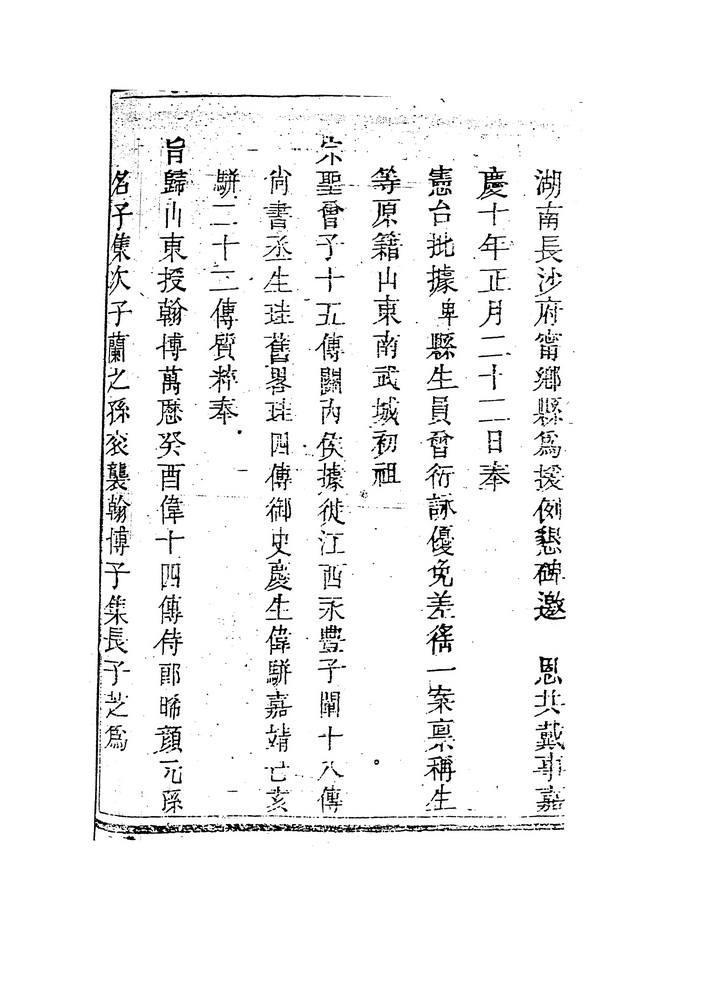 湖南長沙府甯鄉縣為援例懇碑邀　恩共戴事嘉
慶十年正月二十二日奉
憲台批據卑縣生員曾衍詠優免差徭一案禀稱生
等原籍山東南武城初祖
宗聖曾子十五傳關內侯據徙江西永豐子闡十八傳
尚書丞生珪舊畧珪四傳御史慶生偉駢嘉靖乙亥
駢二十三傳質粹奉
旨歸山東授翰博萬歷癸酉偉十四傳侍郎晞顏元孫
名子集次子蘭之孫衮襲翰博子集長子芝為